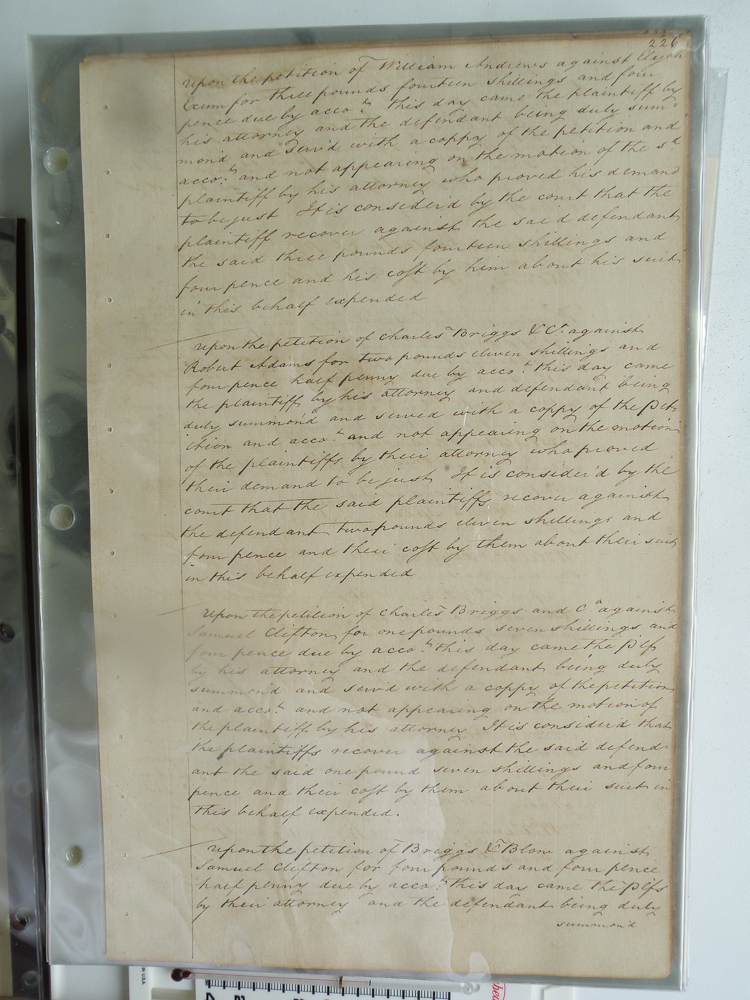 226
Upon the petition of William Andrews against Elijah
Exum for three pounds fourteen shillings and four
pence due by acco.t this day came the plaintiff by
his attorney and the defendant being duly sum
mon'd and serv'd with a coppy of the petition and
acco.t and not appearing on the motion of the sd
plaintiff by his attorney who proved his demand
to be just It is consider'd by the court that the
plaintiff recover against the said defendant
the said three pounds fourteen shillings and
four pence and his cost by him about his suit
in this behalf expended
Upon the petition of Charles Briggs & Co. against
Robert Adams for two pounds eleven shillings and
four pence half penny due by acco.t this day came
the plaintiff by his attorney and defendant being
duly summon'd and served with a coppy of the Pet
ition and acco.t and not appearing on the motion
of the plaintiffs by their attorney who proved
their demand to be just It is consider'd by the
court that the said plaintiffs recover against
the defendant two pounds eleven shillings and
four pence and their cost by them about their suit
in this behalf expended
Upon the petition of Charles Briggs and Co against
Samuel Clifton for one pounds seven shillings and
four pence due by acco.t this day came the Plfs
by his attorney and the defendant being duly
summon'd and serv'd with a coppy of the petition
and acco.t and not appearing on the motion of
the plaintiff by his attorney It is consider'd that
the plaintiffs recover against the said defend
ant the said one pound seven shillings and four
pence and their cost by them about their suit in
this behalf expended.
Upon the petition of Briggs & Blow against
Samuel Clifton for four pounds and four pence
half penny due by acco.t this day came the Plfs
by their attorney and the defendant being duly
summon'd